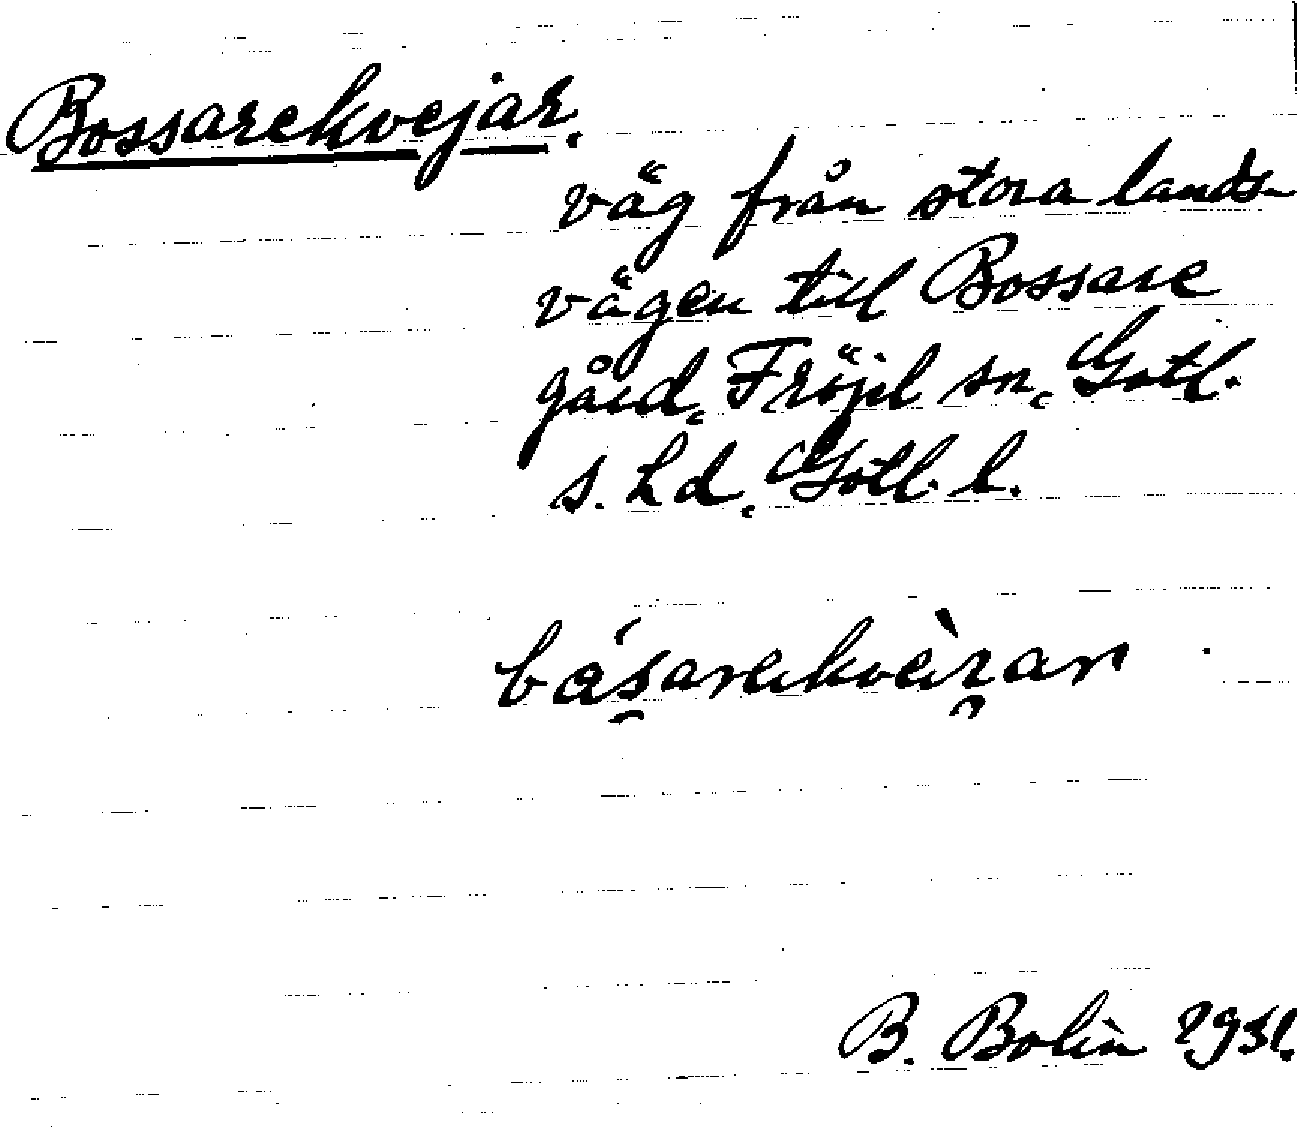 Bossarekvejar.
väg från stora lands-
vägen till Bossare
gård, Fröjel sn, Gotl.
s. hd, Gotl. l.
B. Bolin 1931.